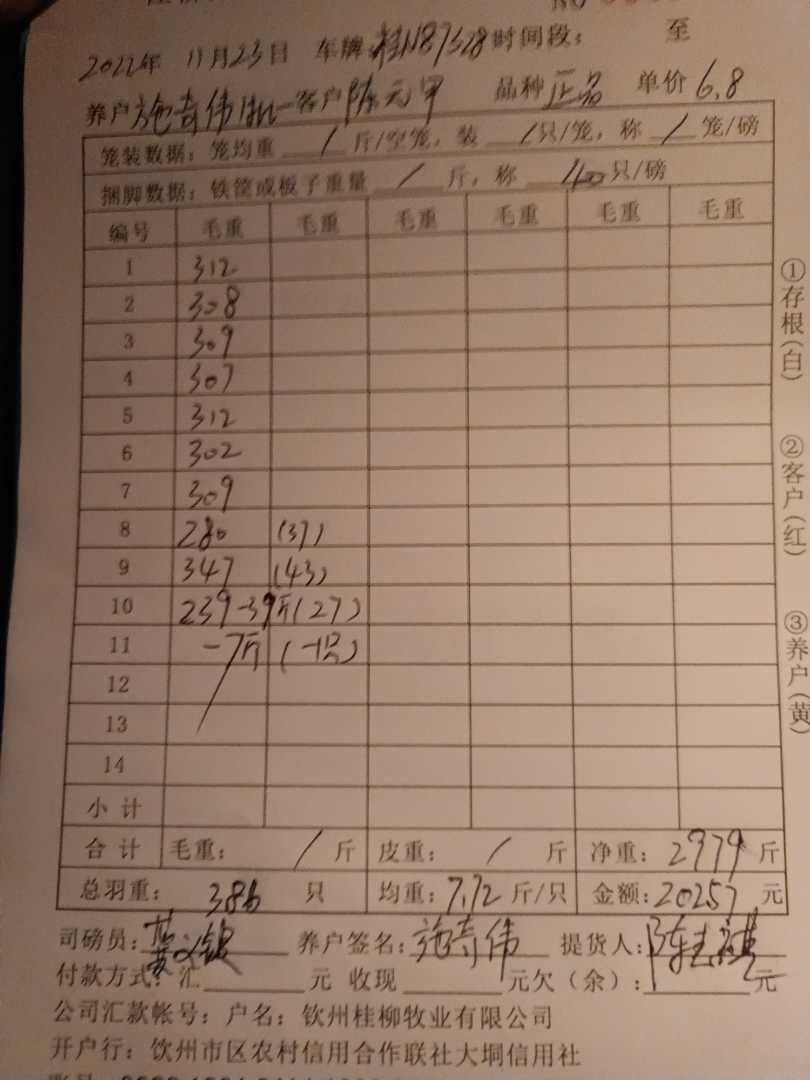 NO
2022年 11月23日 车牌:桂N87528 时间段: 至
养户 施奇伟 客户 陈元甲 品种 正名 单价 6.8
笼装数据: 笼均重 / 斤/空笼, 装 / 只/笼, 称 / 笼/磅
捆脚数据: 铁筐或板子重量 / 斤, 称 40 只/磅
编号 毛重 毛重 毛重 毛重 毛重 毛重
1 312
2 308
3 309
4 307
5 312
6 302
7 309
8 280 (37)
9 347 (43)
10 239-39斤(27)
11 -7斤 (-1只)
12
13
14
小 计
合 计 毛重: / 斤 皮重: / 斤 净重: 2979 斤
总羽重: 386 只 均重: 7.72 斤/只 金额: 20257 元
司磅员: 养户签名: 施奇伟 提货人:
付款方式: 汇 元 收现 元欠(余): 元
公司汇款帐号: 户名: 钦州桂柳牧业有限公司
开户行: 钦州市区农村信用合作联社大垌信用社
①存根(白)
②客户(红)
③养户(黄)